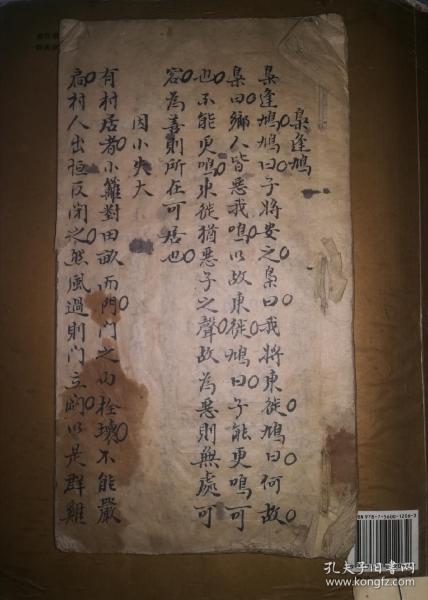 梟逢鳩
梟逢鳩鳩曰子將安之梟曰我將東徙鳩曰何故
梟曰鄉人皆惡我鳴以故東徙鳩曰子能更鳴可
也不能更鳴東徙猶惡子之聲故為惡則無處可
容為善則所在可居也
因小失大
有村居者小籬對田畝而門門之內栓壞不能嚴
扃村人出恒反閉之然風過則門立闢以是群雞
孔夫子旧书网
www.kongfz.com